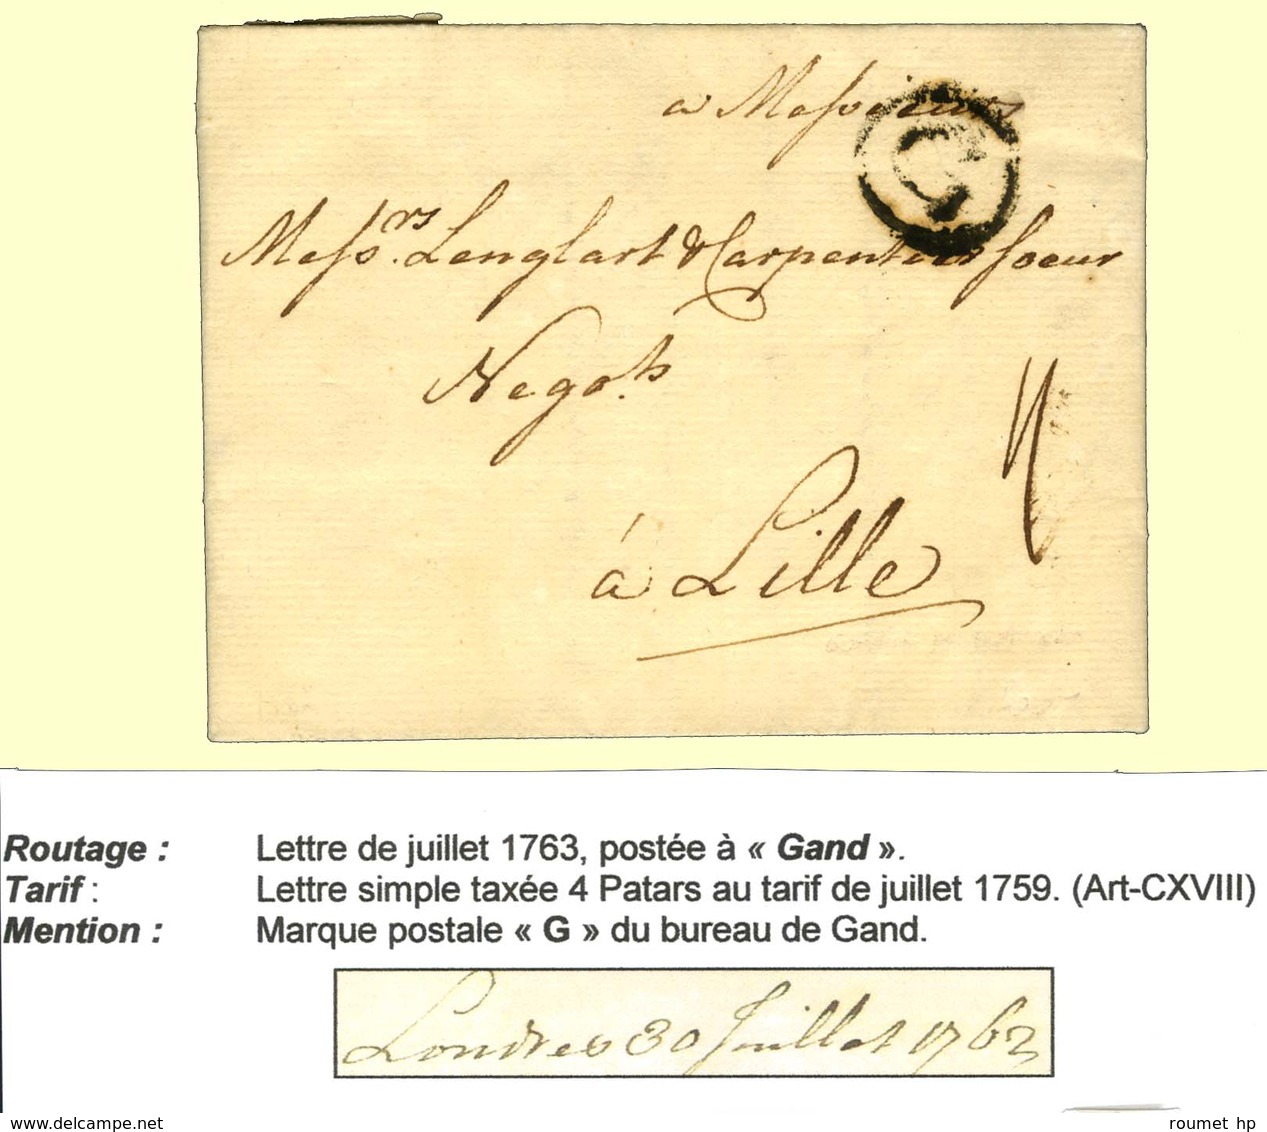 a Messieurs
G
Messrs. Lenglart & Carpentier soeur
Negots.
4
á Lille
Routage : Lettre de juillet 1763, postée à « Gand ».
Tarif : Lettre simple taxée 4 Patars au tarif de juillet 1759. (Art-CXVIII)
Mention : Marque postale « G » du bureau de Gand.
Londres 30 Juillet 1763
www.delcampe.net
roumet hp